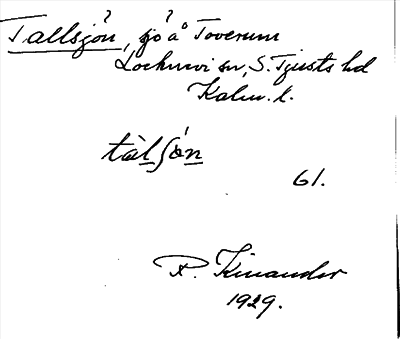 Tallsjön, sjö å Toverum
Locknevi sn, S. Tjusts hd
Kalm. l.
tàlʃón
61.
R. Kinander
1929.